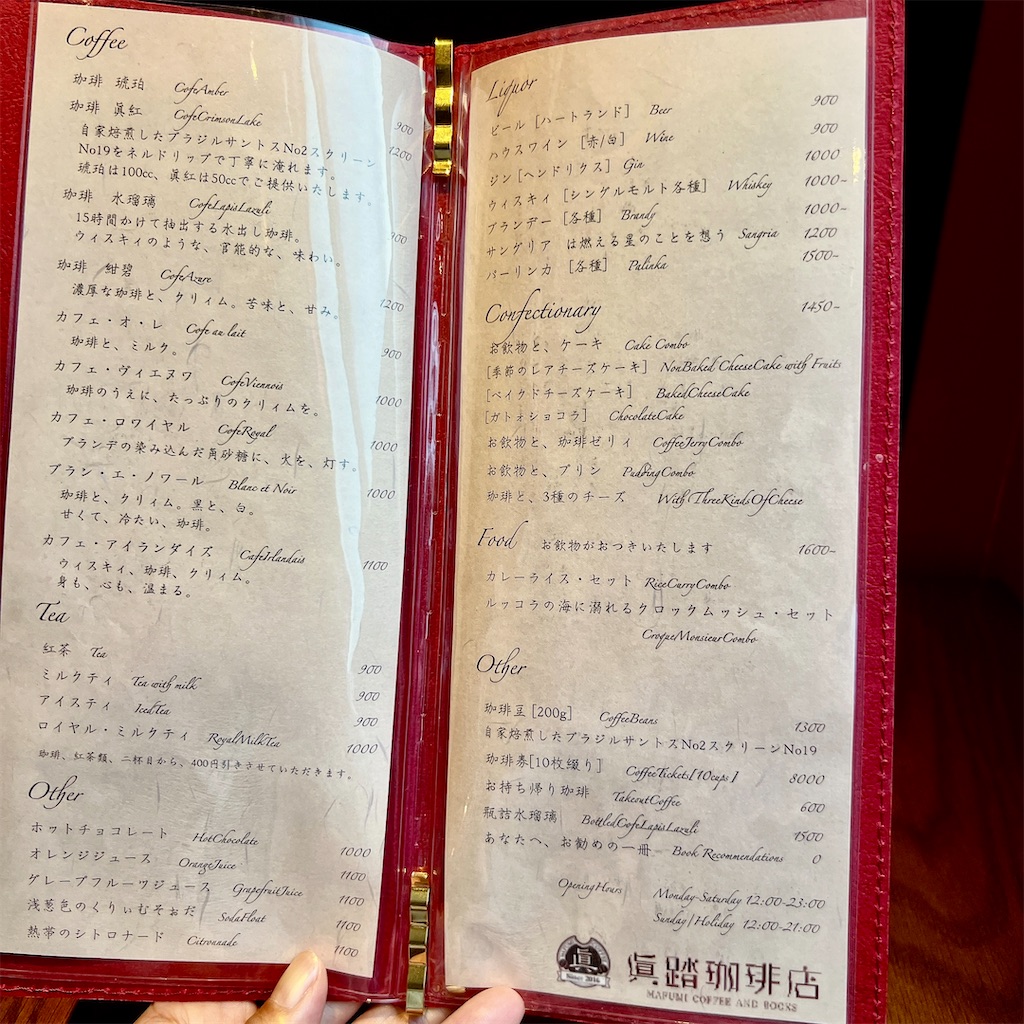 Coffee
珈琲 琥珀 CafeAmber 900
珈琲 眞紅 CafeCrimsonLake 1200
自家焙煎したブラジルサントスNo2スクリーン
No19をネルドリップで丁寧に淹れます。
琥珀は100cc、眞紅は50ccでご提供いたします。
珈琲 水瑠璃 CafeLapisLazuli 900
15時間かけて抽出する水出し珈琲。
ウィスキィのような、官能的な、味わい。
珈琲 紺碧 CafeAzure 1200
濃厚な珈琲と、クリィム。苦味と、甘み。
カフェ・オ・レ Cafe au lait 900
珈琲と、ミルク。
カフェ・ヴィエヌワ CafeViennois 1000
珈琲のうえに、たっぷりのクリィムを。
カフェ・ロワイヤル CafeRoyal 1000
ブランデの染み込んだ角砂糖に、火を、灯す。
ブラン・エ・ノワール Blanc et Noir 1000
珈琲と、クリィム。黒と、白。
甘くて、冷たい、珈琲。
カフェ・アイランダイズ CafeIrlandais 1100
ウィスキィ、珈琲、クリィム。
身も、心も、温まる。
Tea
紅茶 Tea 900
ミルクティ Tea with milk 900
アイスティ IcedTea 900
ロイヤル・ミルクティ RoyalMilkTea 1000
珈琲、紅茶類、二杯目から、400円引きさせていただきます。
Other
ホットチョコレート HotChocolate 1000
オレンジジュース OrangeJuice 1100
グレープフルーツジュース GrapefruitJuice 1100
浅葱色のくりぃむそぉだ SodaFloat 1100
熱帯のシトロナード Citronnade 1100
Liquor
ビール [ハートランド] Beer 900
ハウスワイン [赤/白] Wine 900
ジン [ヘンドリクス] Gin 1000
ウィスキィ [シングルモルト各種] Whiskey 1000~
ブランデー [各種] Brandy 1000~
サングリア は燃える星のことを想う Sangria 1200
パーリンカ [各種] Palinka 1500~
Confectionary 1450~
お飲物と、ケーキ Cake Combo
[季節のレアチーズケーキ] NonBaked CheeseCake with Fruits
[ベイクドチーズケーキ] BakedCheeseCake
[ガトォショコラ] ChocolateCake
お飲物と、珈琲ゼリィ CoffeeJerryCombo
お飲物と、プリン PuddingCombo
珈琲と、3種のチーズ With ThreeKindsOfCheese
Food お飲物がおつきいたします 1600~
カレーライス・セット RiceCurryCombo
ルッコラの海に溺れるクロックムッシュ・セット
CroqueMonsieurCombo
Other
珈琲豆[200g] CoffeeBeans 1300
自家焙煎したブラジルサントスNo2スクリーンNo19
珈琲券[10枚綴り] CoffeeTickets[10cups] 8000
お持ち帰り珈琲 TakeoutCoffee 600
瓶詰水瑠璃 BottledCafeLapisLazuli 1500
あなたへ、お勧めの一冊 Book Recommendations 0
OpeningHours Monday-Saturday 12:00-23:00
Sunday/Holiday 12:00-21:00
眞
Since 2016
眞踏珈琲店
MAFUMI COFFEE AND BOOKS